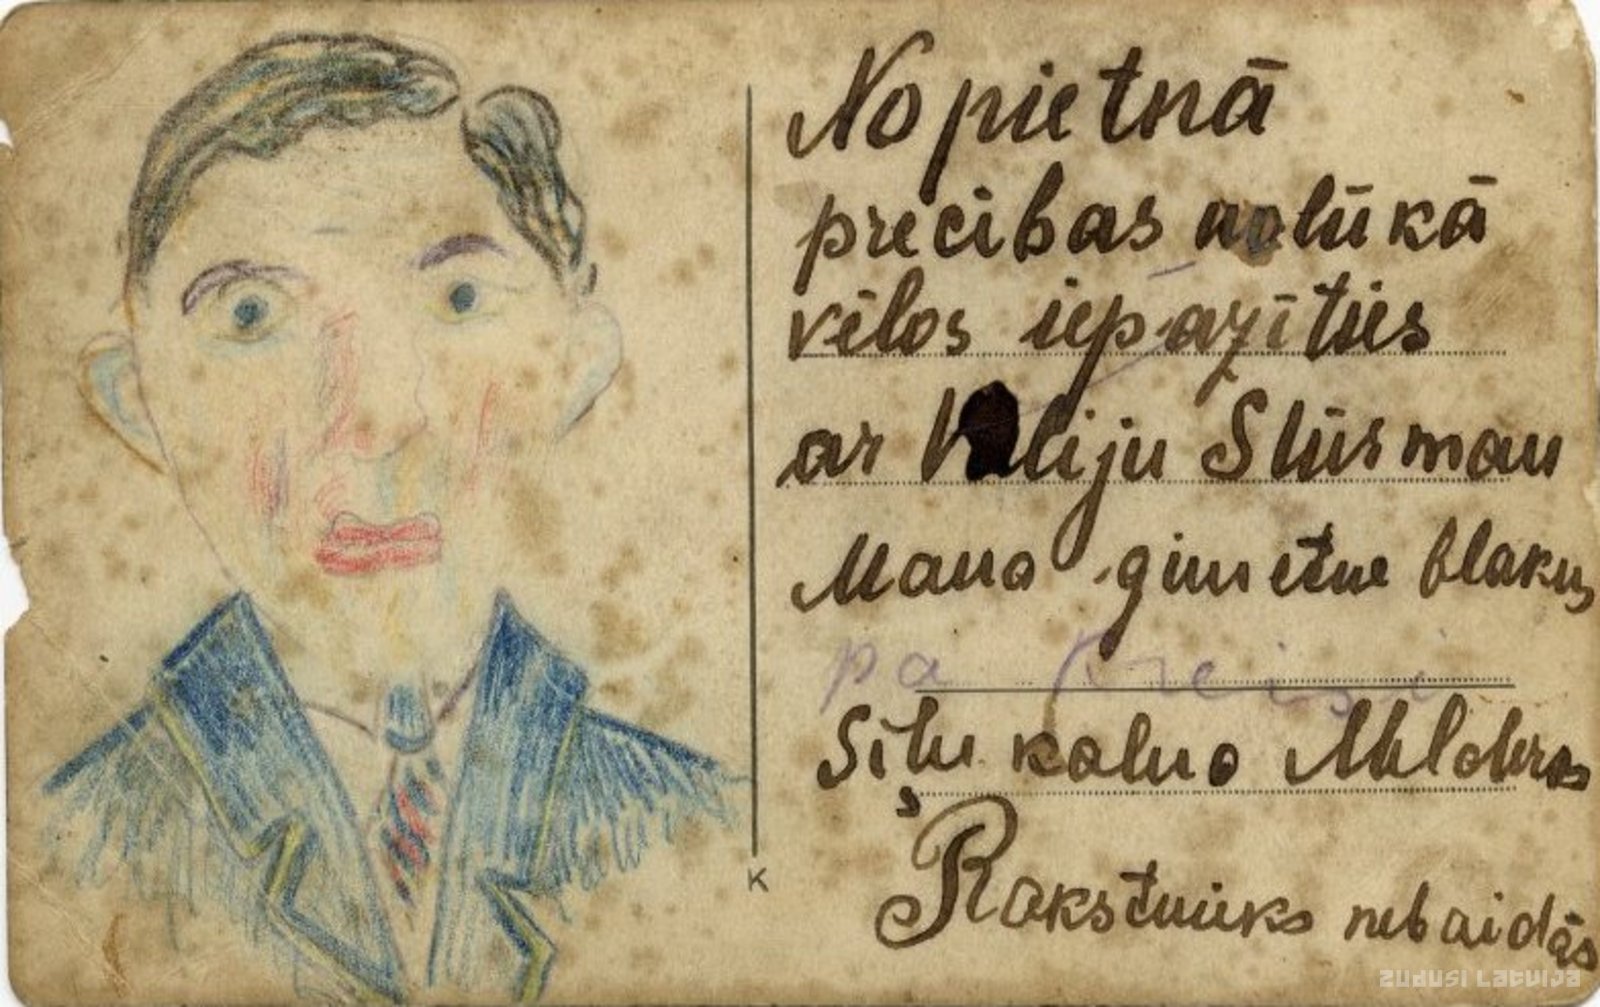 Nopietnā
precības nolūkā
vēlos iepazīties
ar Valiju Stūrman
Mana ģimetne blakus
pa kreisi
Siļu kalna Melderos
Rakstnieks nebaidās
K
ZUDUSI LATVIJA